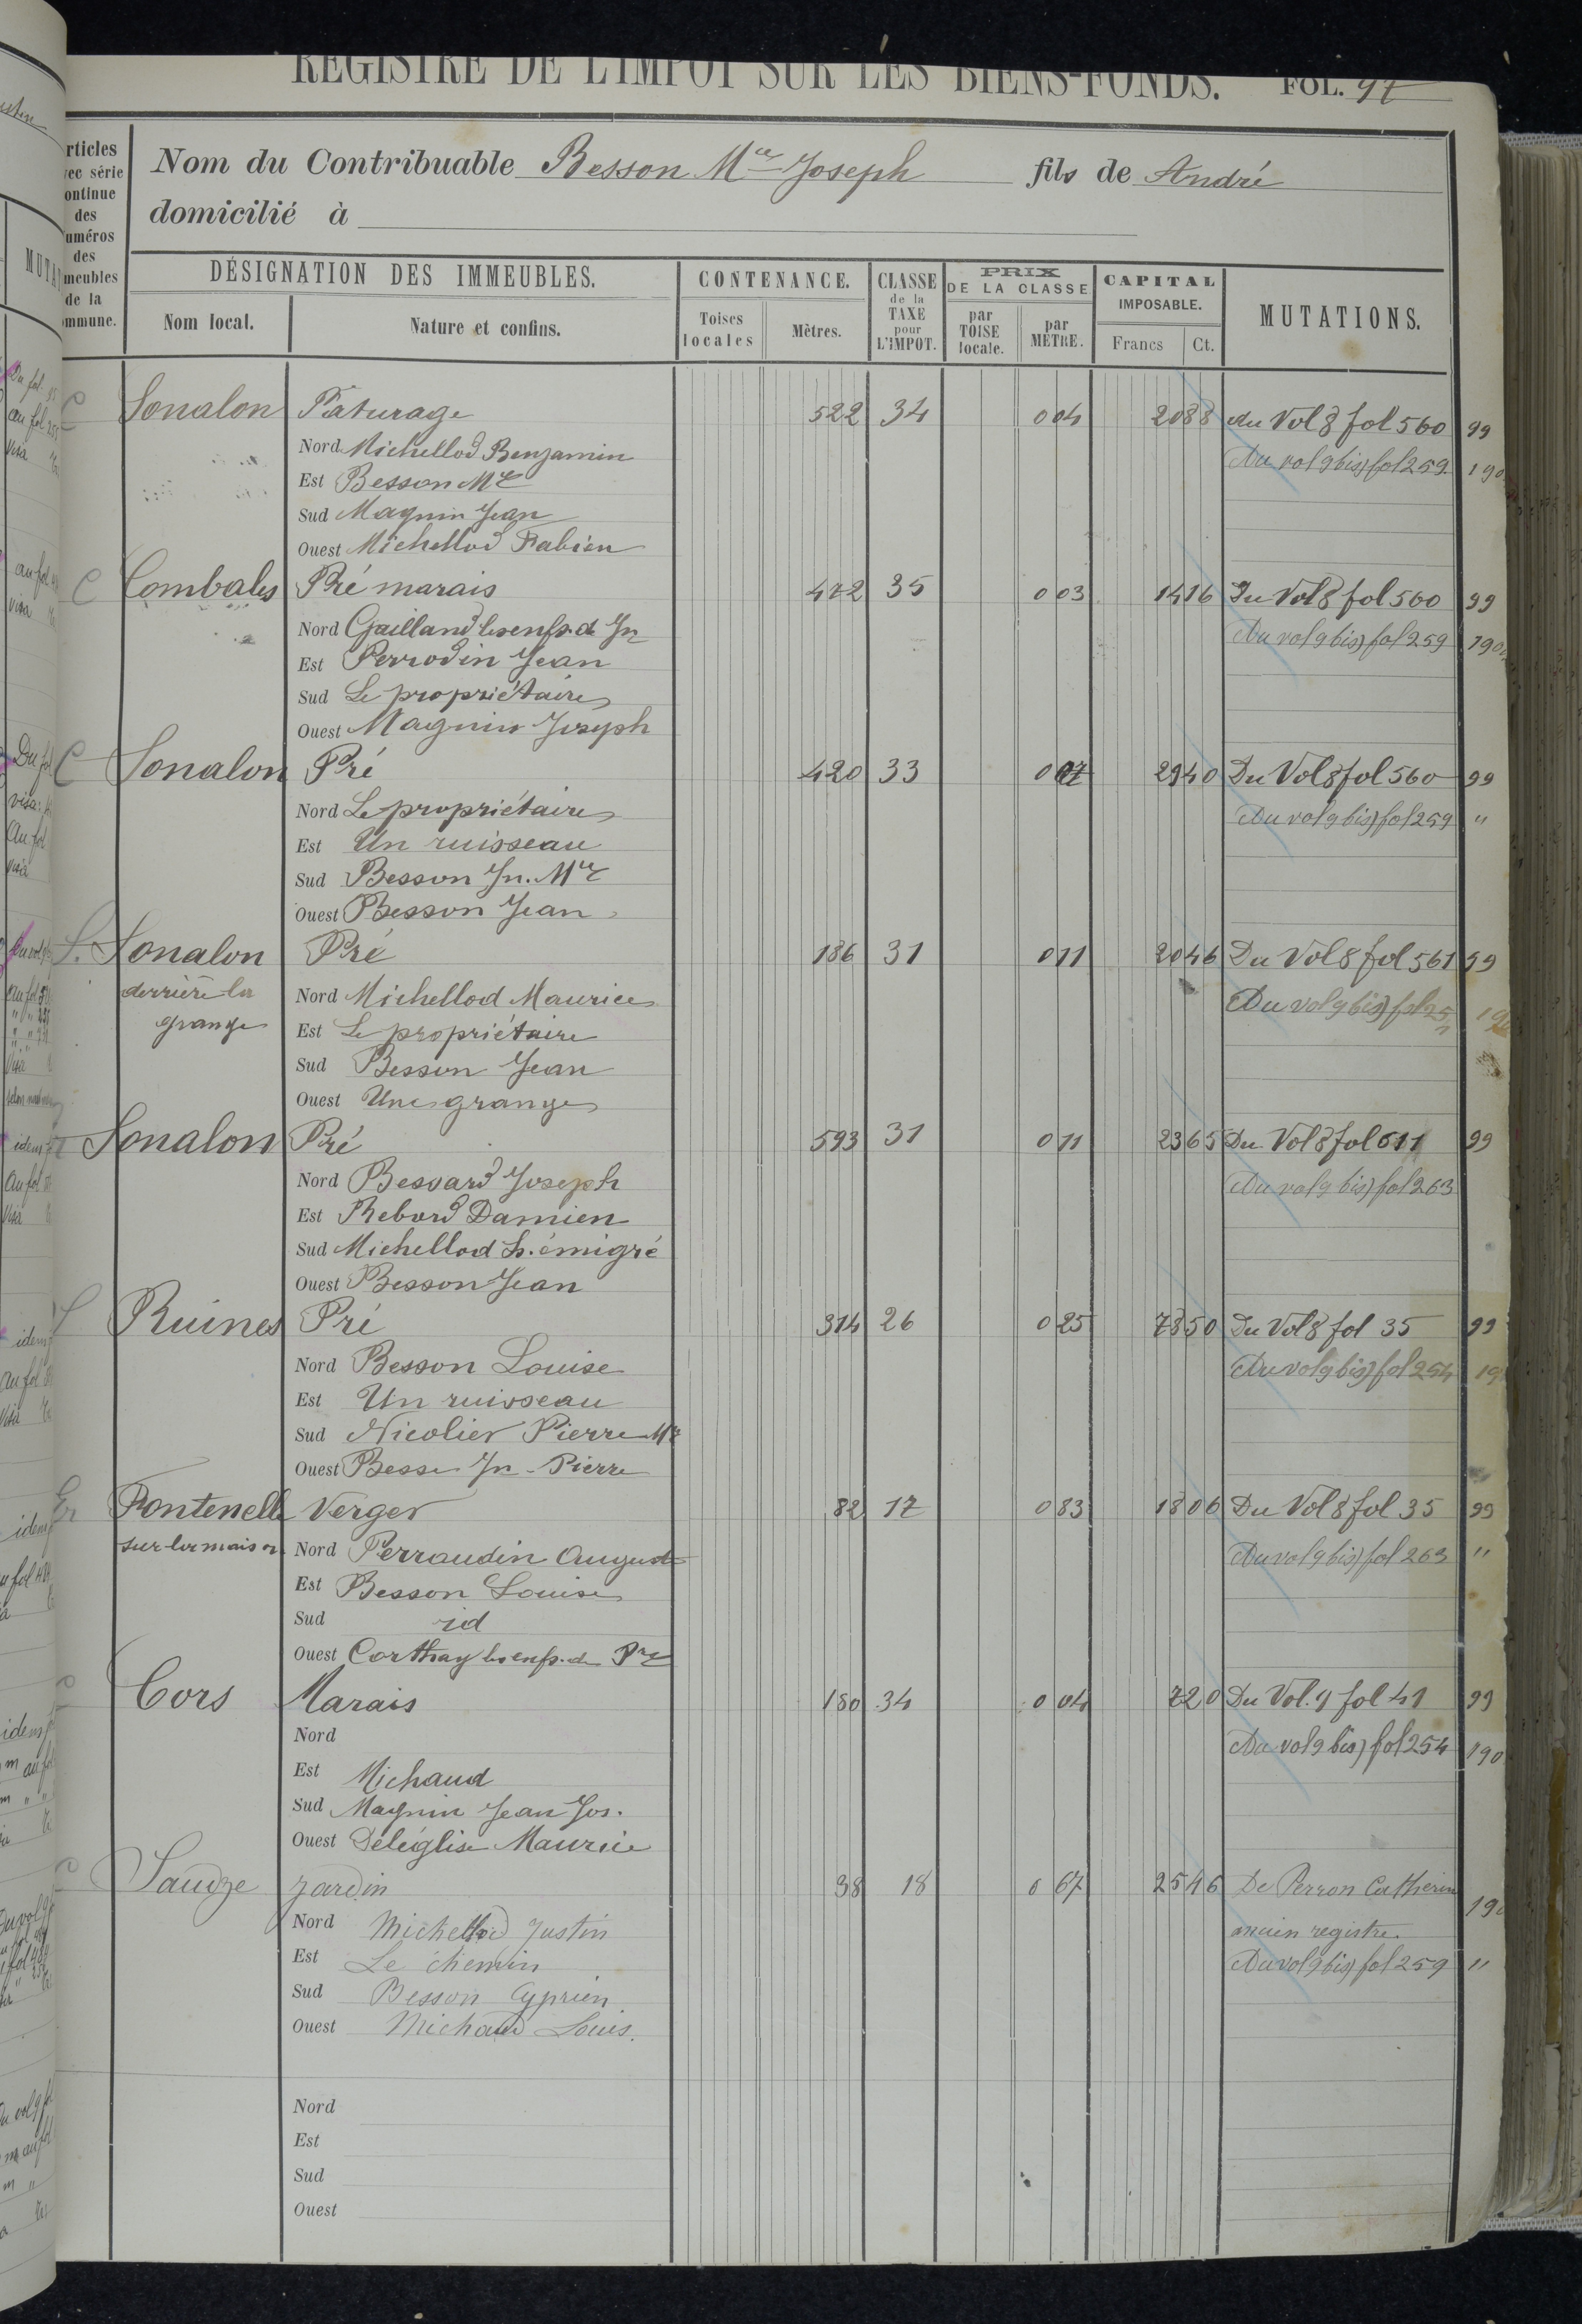 REGISTRE DE L'IMPOT SUR LES BIENS-FONDS. FOL. 97
Nom du Contribuable Besson Mce Joseph fils de André
domicilié à
rticles
vec série
ontinue
des
uméros
des
meubles
de la
ommune.
DÉSIGNATION DES IMMEUBLES.
Nom local.
Nature et confins.
CONTENANCE.
Toises locales
Mètres.
CLASSE de la TAXE pour L'IMPOT.
PRIX DE LA CLASSE
par TOISE locale.
par MÈTRE.
CAPITAL IMPOSABLE.
Francs Ct.
MUTATIONS.
C Sonalon Pâturage 522 34 0 04 20 88 du Vol 8 fol 560 99
Nord Michellod Benjamin Au vol 9 bis) fol 259 190
Est Besson Mce
Sud Magnin Jean
Ouest Michellod Fabien
C Combales Pré marais 472 35 0 03 14 16 Du Vol 8 fol 560 99
Nord Gailland les enfs. de Jn Au vol 9 bis) fol 259 190
Est Perrodin Jean
Sud Le propriétaire
Ouest Magnin Joseph
C Sonalon Pré 420 33 0 07 29 40 Du Vol 8 fol 560 99
Nord Le propriétaire Au vol 9 bis) fol 259 "
Est Un ruisseau
Sud Besson Jn. Mce
Ouest Besson Jean
S. Sonalon Pré 186 31 0 11 20 46 Du Vol 8 fol 561 99
derrière la Nord Michellod Maurice Au vol 9 bis) fol 25
grange Est Le propriétaire
Sud Besson Jean
Ouest Une grange
Sonalon Pré 593 31 0 11 23 65 Du Vol 8 fol 611 99
Nord Besvard Joseph Au vol 9 bis) fol 263
Est Rebord Damien
Sud Michellod h. émigré
Ouest Besson Jean
Ruines Pré 314 26 0 25 78 50 Du Vol 8 fol 35 99
Nord Besson Louise Au vol 9 bis) fol 254 19
Est Un ruisseau
Sud Nicolier Pierre Mce
Ouest Besse Jn-Pierre
Fontenelle Verger 82 17 0 83 18 06 Du Vol 8 fol 35 99
sur la maison Nord Perraudin Auguste Au vol 9 bis) fol 263 "
Est Besson Louise
Sud id
Ouest Corthay les enfs. de Pre
Cors Marais 180 34 0 04 7 20 Du Vol. 9 fol 41 99
Nord Au vol 9 bis) fol 254 190
Est Michaud
Sud Magnin Jean Jos.
Ouest Déléglise Maurice
Saudze Jardin 38 18 0 67 25 46 De Perron Catherine 190
Nord Michellod Justin ancien registre.
Est Le chemin Au vol 9 bis) fol 259 "
Sud Besson Cyprien
Ouest Michaud Louis.
Nord
Est
Sud
Ouest